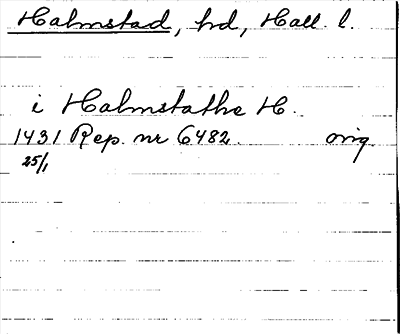 Halmstad, hd, Hall. l.
i Halmstathe H.
1431 Rep. nr 6482. orig.
25/1